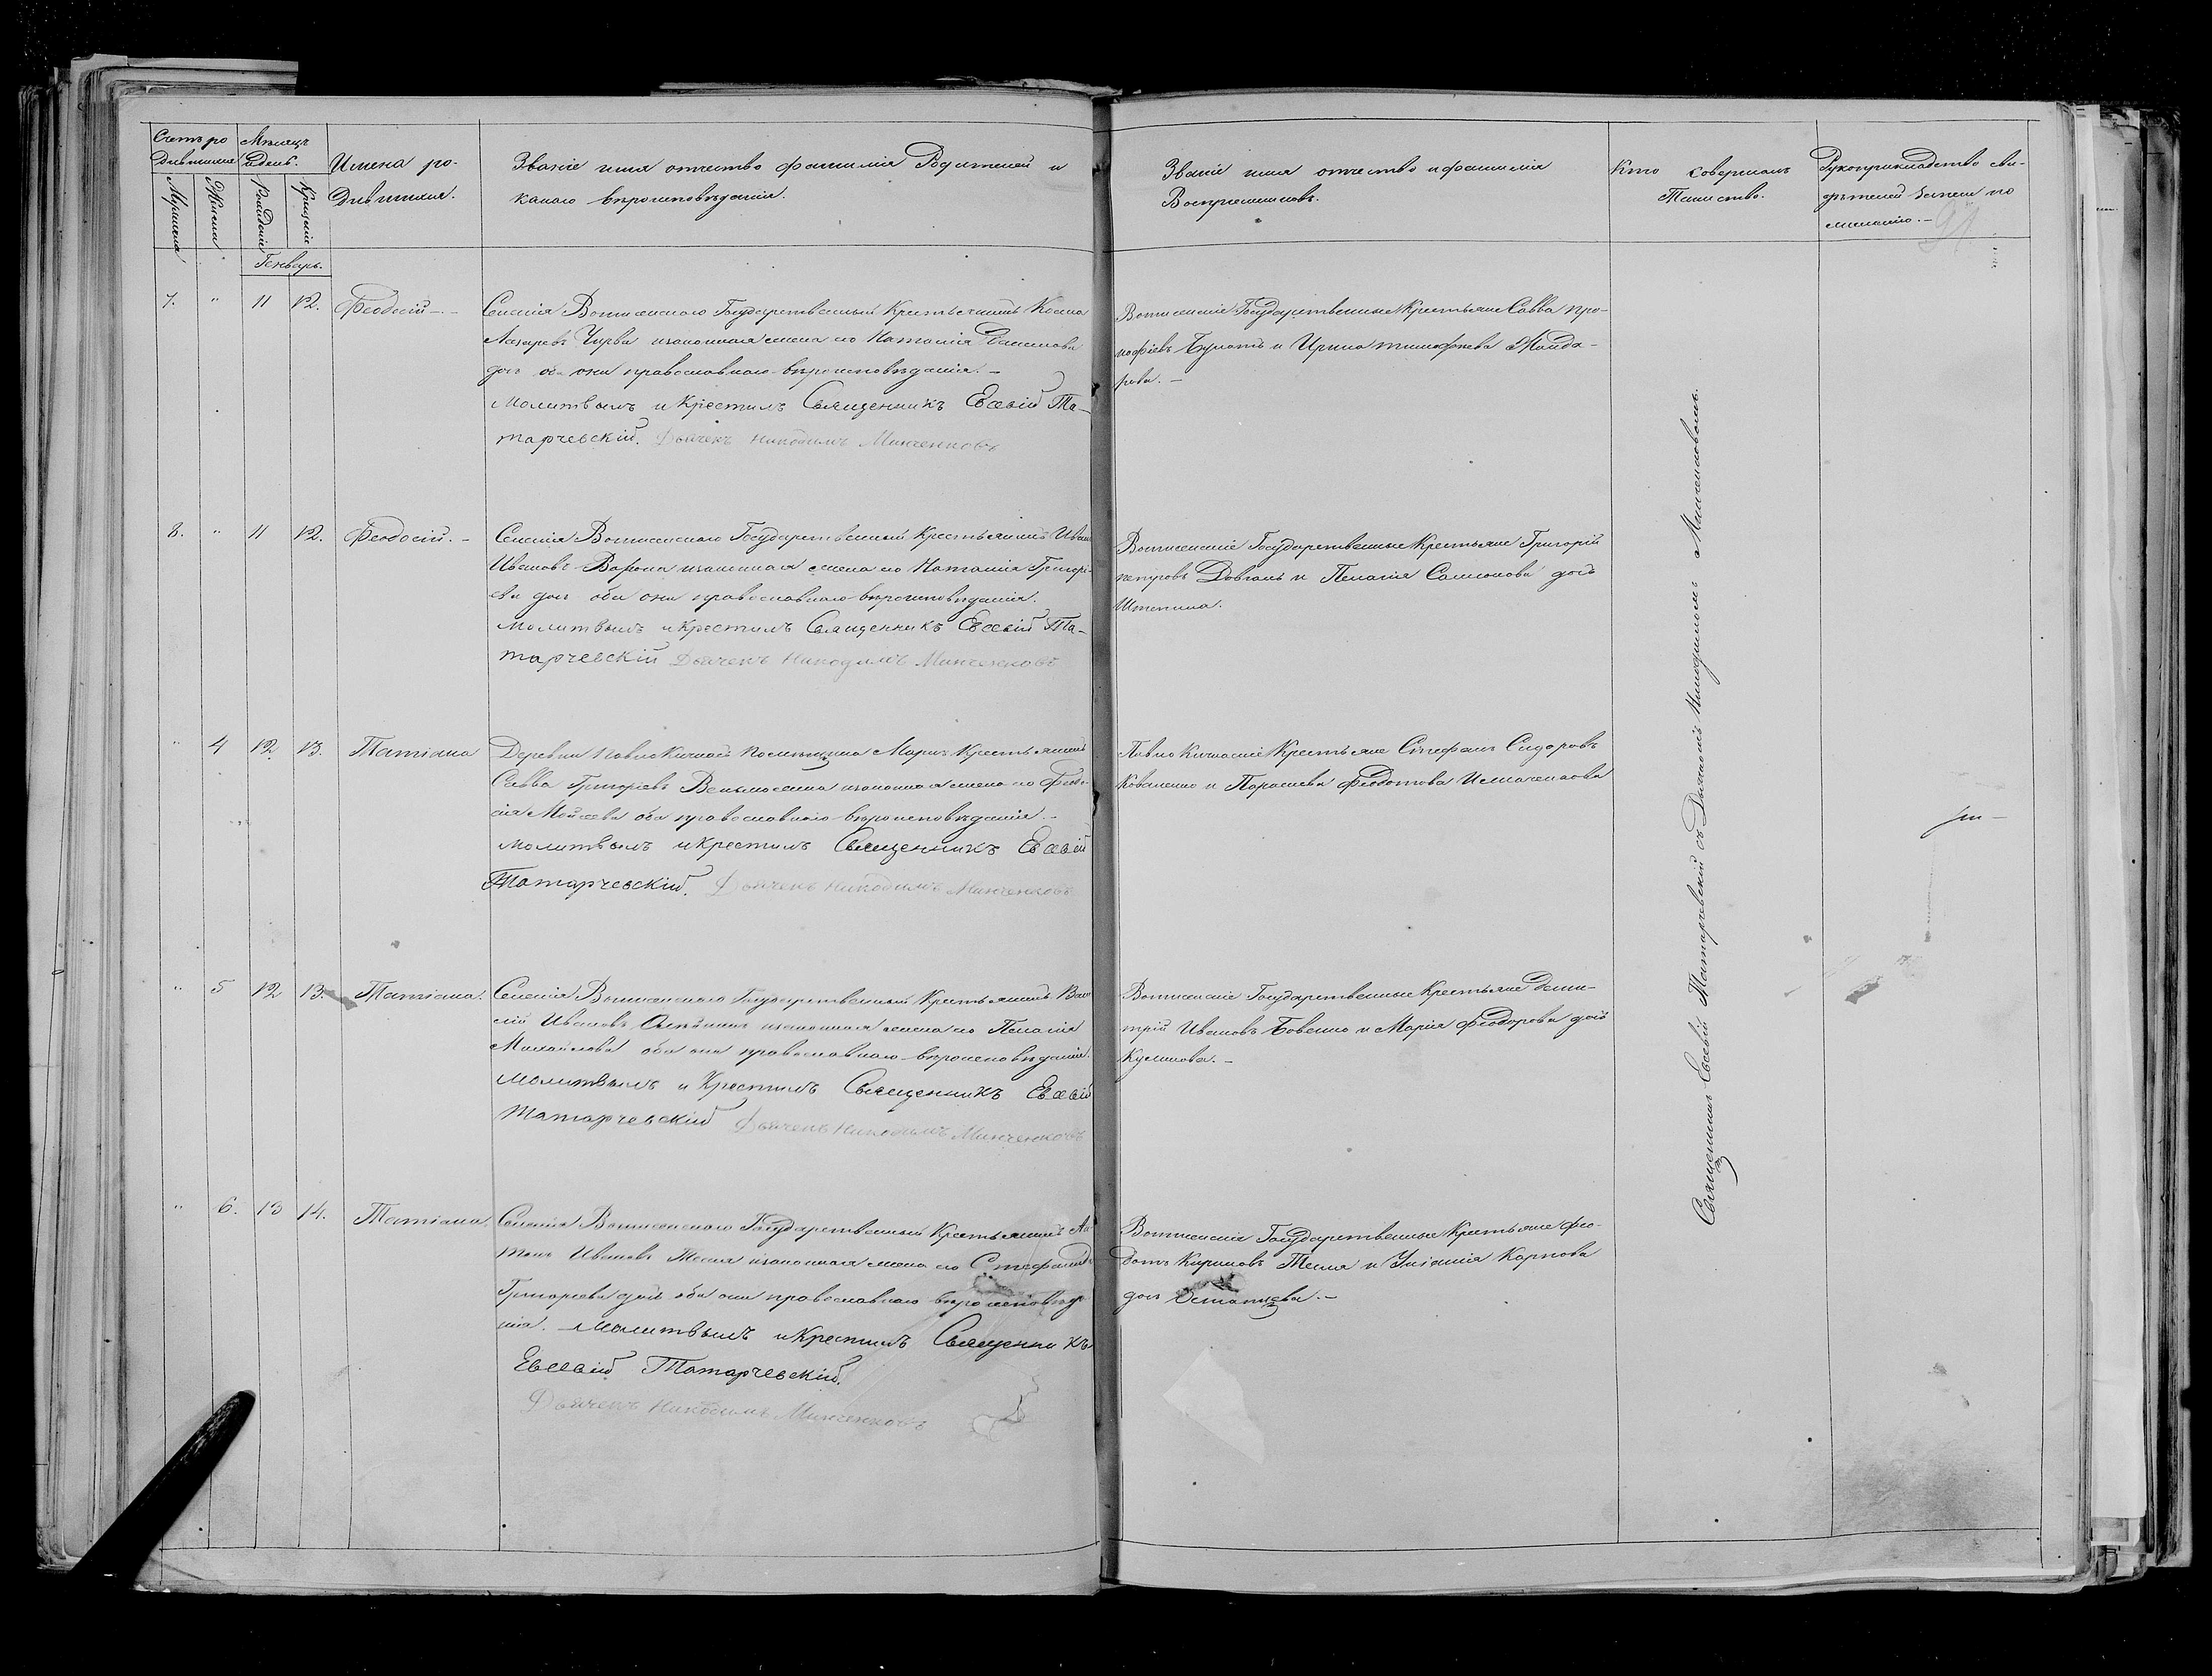 Счетъ ро
дившихся
Мѣсяцъ
и день.
Имена ро-
дившихся.
Званіе имя отчество фамилія Родителей и
какаго вѣроисповѣданія.
Званіе имя отчество и фамилія
Воспріемниковъ.
Кто совершалъ
Таинство.
Рукоприкладство сви-
дѣтелей записи по
желанію.
Мужеска
Женска
Рожденіе
Крещеніе
91
Генварь.
7. " 11 12. Феодосій
Селенія Государственный Крестьянинъ Косма
Лазаревъ Чирва и законная жена его Наталія
дочь оба они православнаго вѣроисповѣданія.
Молитвылъ и Крестилъ Священникъ Евсевій Та-
тарчевскій. Дьячекъ Никодимъ Минченковъ
Государственные Крестьяне Савва Про-
кофіевъ и Ирина Тимофеева Майда-
рова.
8. " 11 12. Феодосій.
Селенія Государственный Крестьянинъ Иванъ
Ивановъ Ворона и законная жена его Наталія Григорі-
ева дочь оба они православнаго вѣроисповѣданія.
Молитвылъ и Крестилъ Священникъ Евсевій Та-
тарчевскій Дьячекъ Никодимъ Минченковъ
Государственные Крестьяне Григорій
Петровъ Довгань и Пелагія Самсонова дочь
Штепина.
" 4 12 13. Татіана
Деревни помѣщика Крестьянинъ
Савва Григоріевъ и законная жена его Феодо-
сія Моисеева оба православнаго вѣроисповѣданія.
Молитвылъ и Крестилъ Священникъ Евсевій
Татарчевскій. Дьячекъ Никодимъ Минченковъ
Крестьяне Стефанъ Сидоровъ
Коваленко и Параскева Феодотова
" 5 12 13. Татіана.
Селенія Государственный Крестьянинъ Васи
лій Ивановъ и законная жена его Пелагія
Михайлова оба они православнаго вѣроисповѣданія.
Молитвылъ и Крестилъ Священникъ Евсевій
Татарчевскій Дьячекъ Никодимъ Минченковъ
Государственные Крестьяне Дими-
трій Ивановъ Бовенко и Марія Феодорова дочь
Куликова.
" 6. 13 14. Татіана.
Селенія Государственный Крестьянинъ Ан
тонъ Ивановъ и законная жена его Стефанида
Григорьева дочь оба они православнаго вѣроисповѣд
нія. Молитвылъ и Крестилъ Священникъ
Евсевій Татарчевскій.
Дьячекъ Никодимъ Минченковъ
Государственные Крестьяне Фео-
дотъ Кириловъ и Уліанія Карпова
дочь Остапцева.
Священникъ Евсевій Татарчевскій съ Дьячкомъ Никодимомъ Минченковымъ.